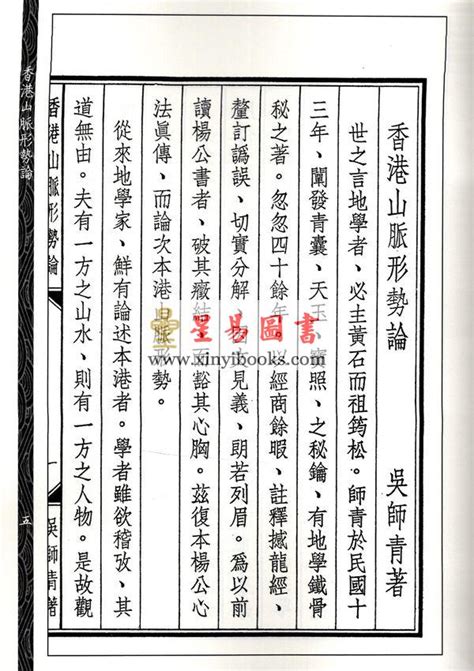 香港山脈形勢論　吳師青著
世之言地學者、必主黃石而祖筠松。師青於民國十
三年、闡發青囊、天玉、寶照、之秘鑰、有地學鐵骨
秘之著。忽忽四十餘年。以經商餘暇、註釋撼龍經、
釐訂譌誤、切實分解、見義、朗若列眉。爲以前
讀楊公書者、破其癥結、豁其心胸。茲復本楊公心
法眞傳、而論次本港山脈形勢。
從來地學家、鮮有論述本港者。學者雖欲稽攷、其
道無由。夫有一方之山水、則有一方之人物。是故觀
香港山脈形勢論　一　吳師青著
香港山脈形勢論　五
星易圖書
www.xinyibooks.com